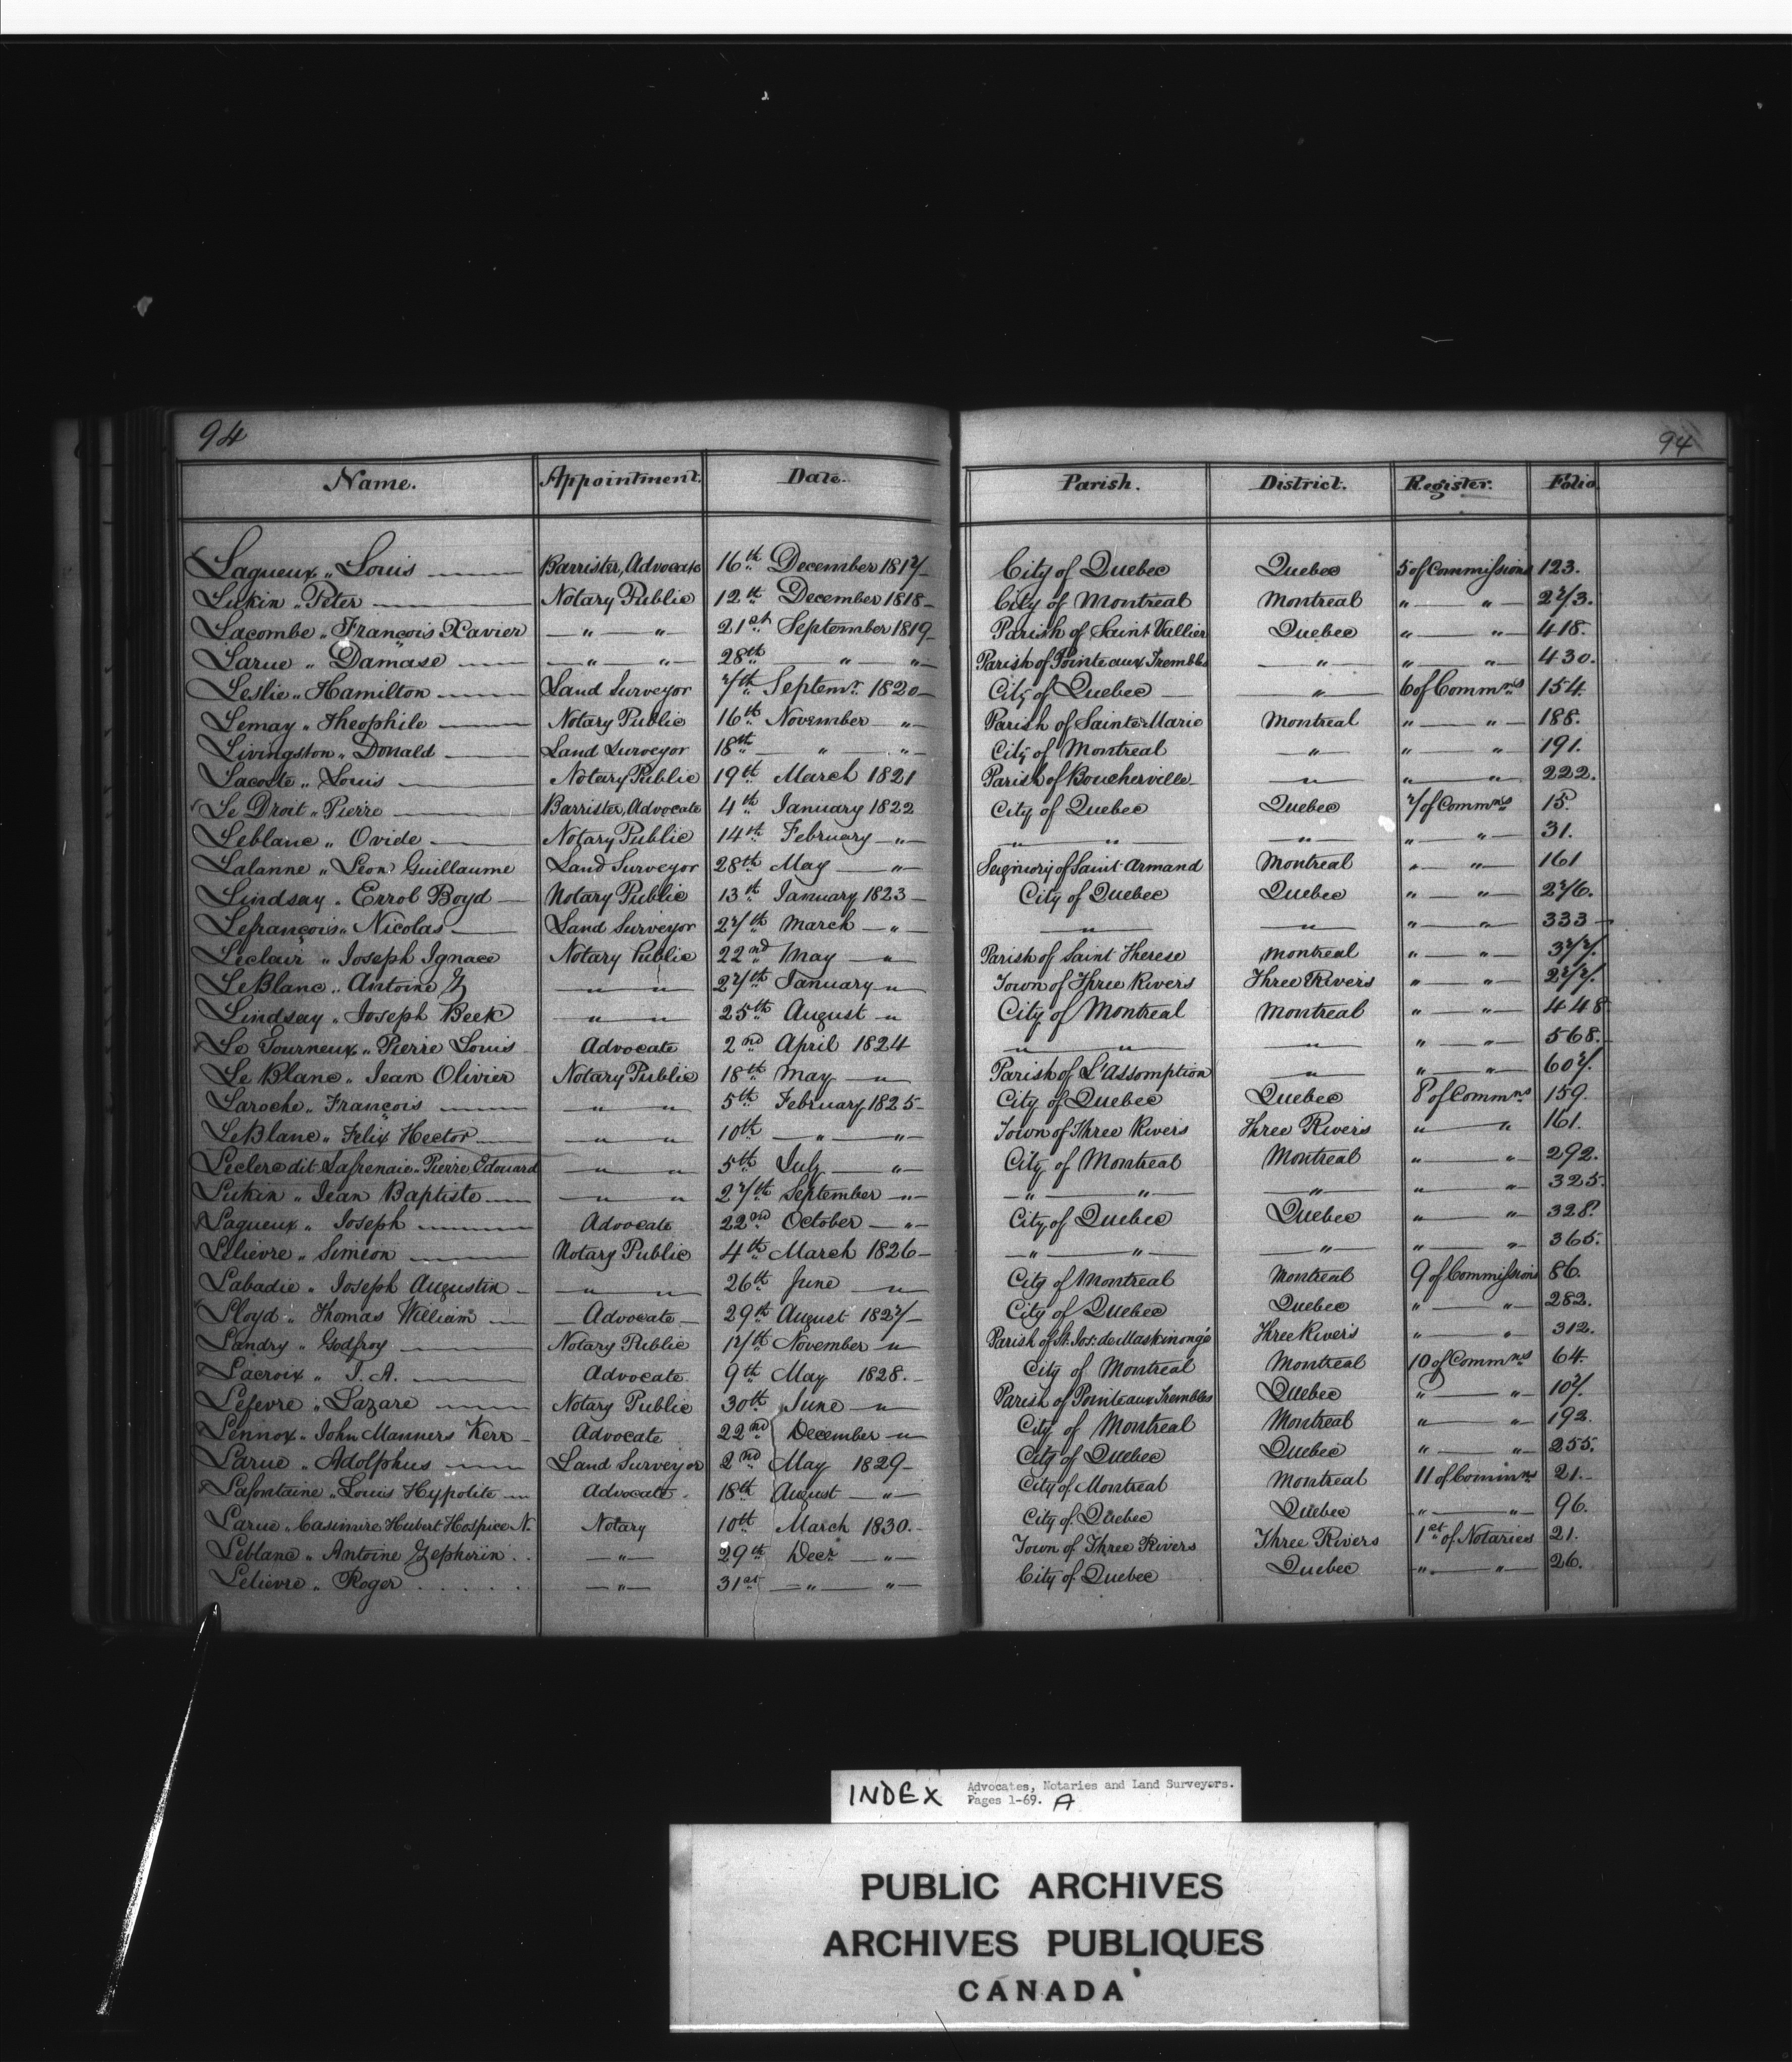 94 94
Name. Appointment. Date. Parish. District. Register. Folio
Lagueux „ Louis Barrister, Advocate 16th December 1817 City of Quebec Quebec 5 of Commissions 123.
Lukin „ Peter Notary Public 12th December 1818 City of Montreal Montreal „ „ 273.
Lacombe „ François Xavier „ „ 21st September 1819 Parish of Saint Vallier Quebec „ „ 418.
Larue „ Damase „ „ 28th „ „ Parish of Pointe aux Trembles „ „ „ 430.
Leslie „ Hamilton Land Surveyor 7th Septemr 1820 City of Quebec „ 6 of Commns 154.
Lemay „ Theophile Notary Public 16th November „ Parish of Sainte Marie Montreal „ „ 188.
Livingston „ Donald Land Surveyor 18th „ „ City of Montreal „ „ „ 191.
Lacoste „ Louis Notary Public 19th March 1821 Parish of Boucherville „ „ „ 222.
Le Droit „ Pierre Barrister, Advocate 4th January 1822 City of Quebec Quebec 7 of Commns 15.
Leblanc „ Ovide Notary Public 14th February „ „ „ „ „ „ 31.
Lalanne „ Leon Guillaume Land Surveyor 28th May „ Seigniory of Saint Armand Montreal „ „ 161
Lindsay „ Errol Boyd Notary Public 13th January 1823 City of Quebec Quebec „ „ 276.
Lefrançois „ Nicolas Land Surveyor 27th March „ „ „ „ „ 333
Leclair „ Joseph Ignace Notary Public 22nd May „ Parish of Saint Therese Montreal „ „ 377.
LeBlanc „ Antoine Z „ „ 27th January „ Town of Three Rivers Three Rivers „ „ 277.
Lindsay „ Joseph Beek „ „ 25th August „ City of Montreal Montreal „ „ 448
Le Tourneux „ Pierre Louis Advocate 2nd April 1824 „ „ „ „ „ 568.
Le Blanc „ Jean Olivier Notary Public 18th May „ Parish of L'Assomption „ „ „ 607.
Laroche „ François „ „ 5th February 1825 City of Quebec Quebec 8 of Commns 159.
LeBlanc „ Felix Hector „ „ 10th „ „ Town of Three Rivers Three Rivers „ „ 161.
Leclerc dit Lafrenaie „ Pierre Edouard „ „ 5th July „ City of Montreal Montreal „ „ 292.
Lukin „ Jean Baptiste „ „ 27th September „ „ „ „ „ „ 325.
Lagueux „ Joseph Advocate 22nd October „ City of Quebec Quebec „ „ 328.
Lelievre „ Simeon Notary Public 4th March 1826 „ „ „ „ „ 365.
Labadie „ Joseph Augustin „ „ 26th June „ City of Montreal Montreal 9 of Commissions 86.
Lloyd „ Thomas William Advocate 29th August 1827 City of Quebec Quebec „ „ 282.
Landry „ Godfroy Notary Public 17th November „ Parish of St. Jos: de Maskinongé Three Rivers „ „ 312.
Lacroix „ J. A. Advocate. 9th May 1828. City of Montreal Montreal 10 of Commns 64.
Lefevre „ Lazare Notary Public 30th June „ Parish of Pointe aux Trembles Quebec „ „ 107.
Lennox „ John Manners Kerr Advocate 22nd December „ City of Montreal Montreal „ „ 192.
Larue „ Adolphus Land Surveyor 2nd May 1829 City of Quebec Quebec „ „ 255.
Lafontaine „ Louis Hypolite Advocate. 18th August „ City of Montreal Montreal 11 of Commns 21.
Larue „ Casimire Hubert Hospice N. Notary 10th March 1830. City of Quebec Quebec „ „ 96.
Leblanc „ Antoine Zepherin „ 29th Decr „ Town of Three Rivers Three Rivers 1st of Notaries 21.
Lelievre „ Roger „ 31st „ „ City of Quebec Quebec „ „ 26.
INDEX Advocates, Notaries and Land Surveyors.
Pages 1-69. A
PUBLIC ARCHIVES
ARCHIVES PUBLIQUES
CANADA